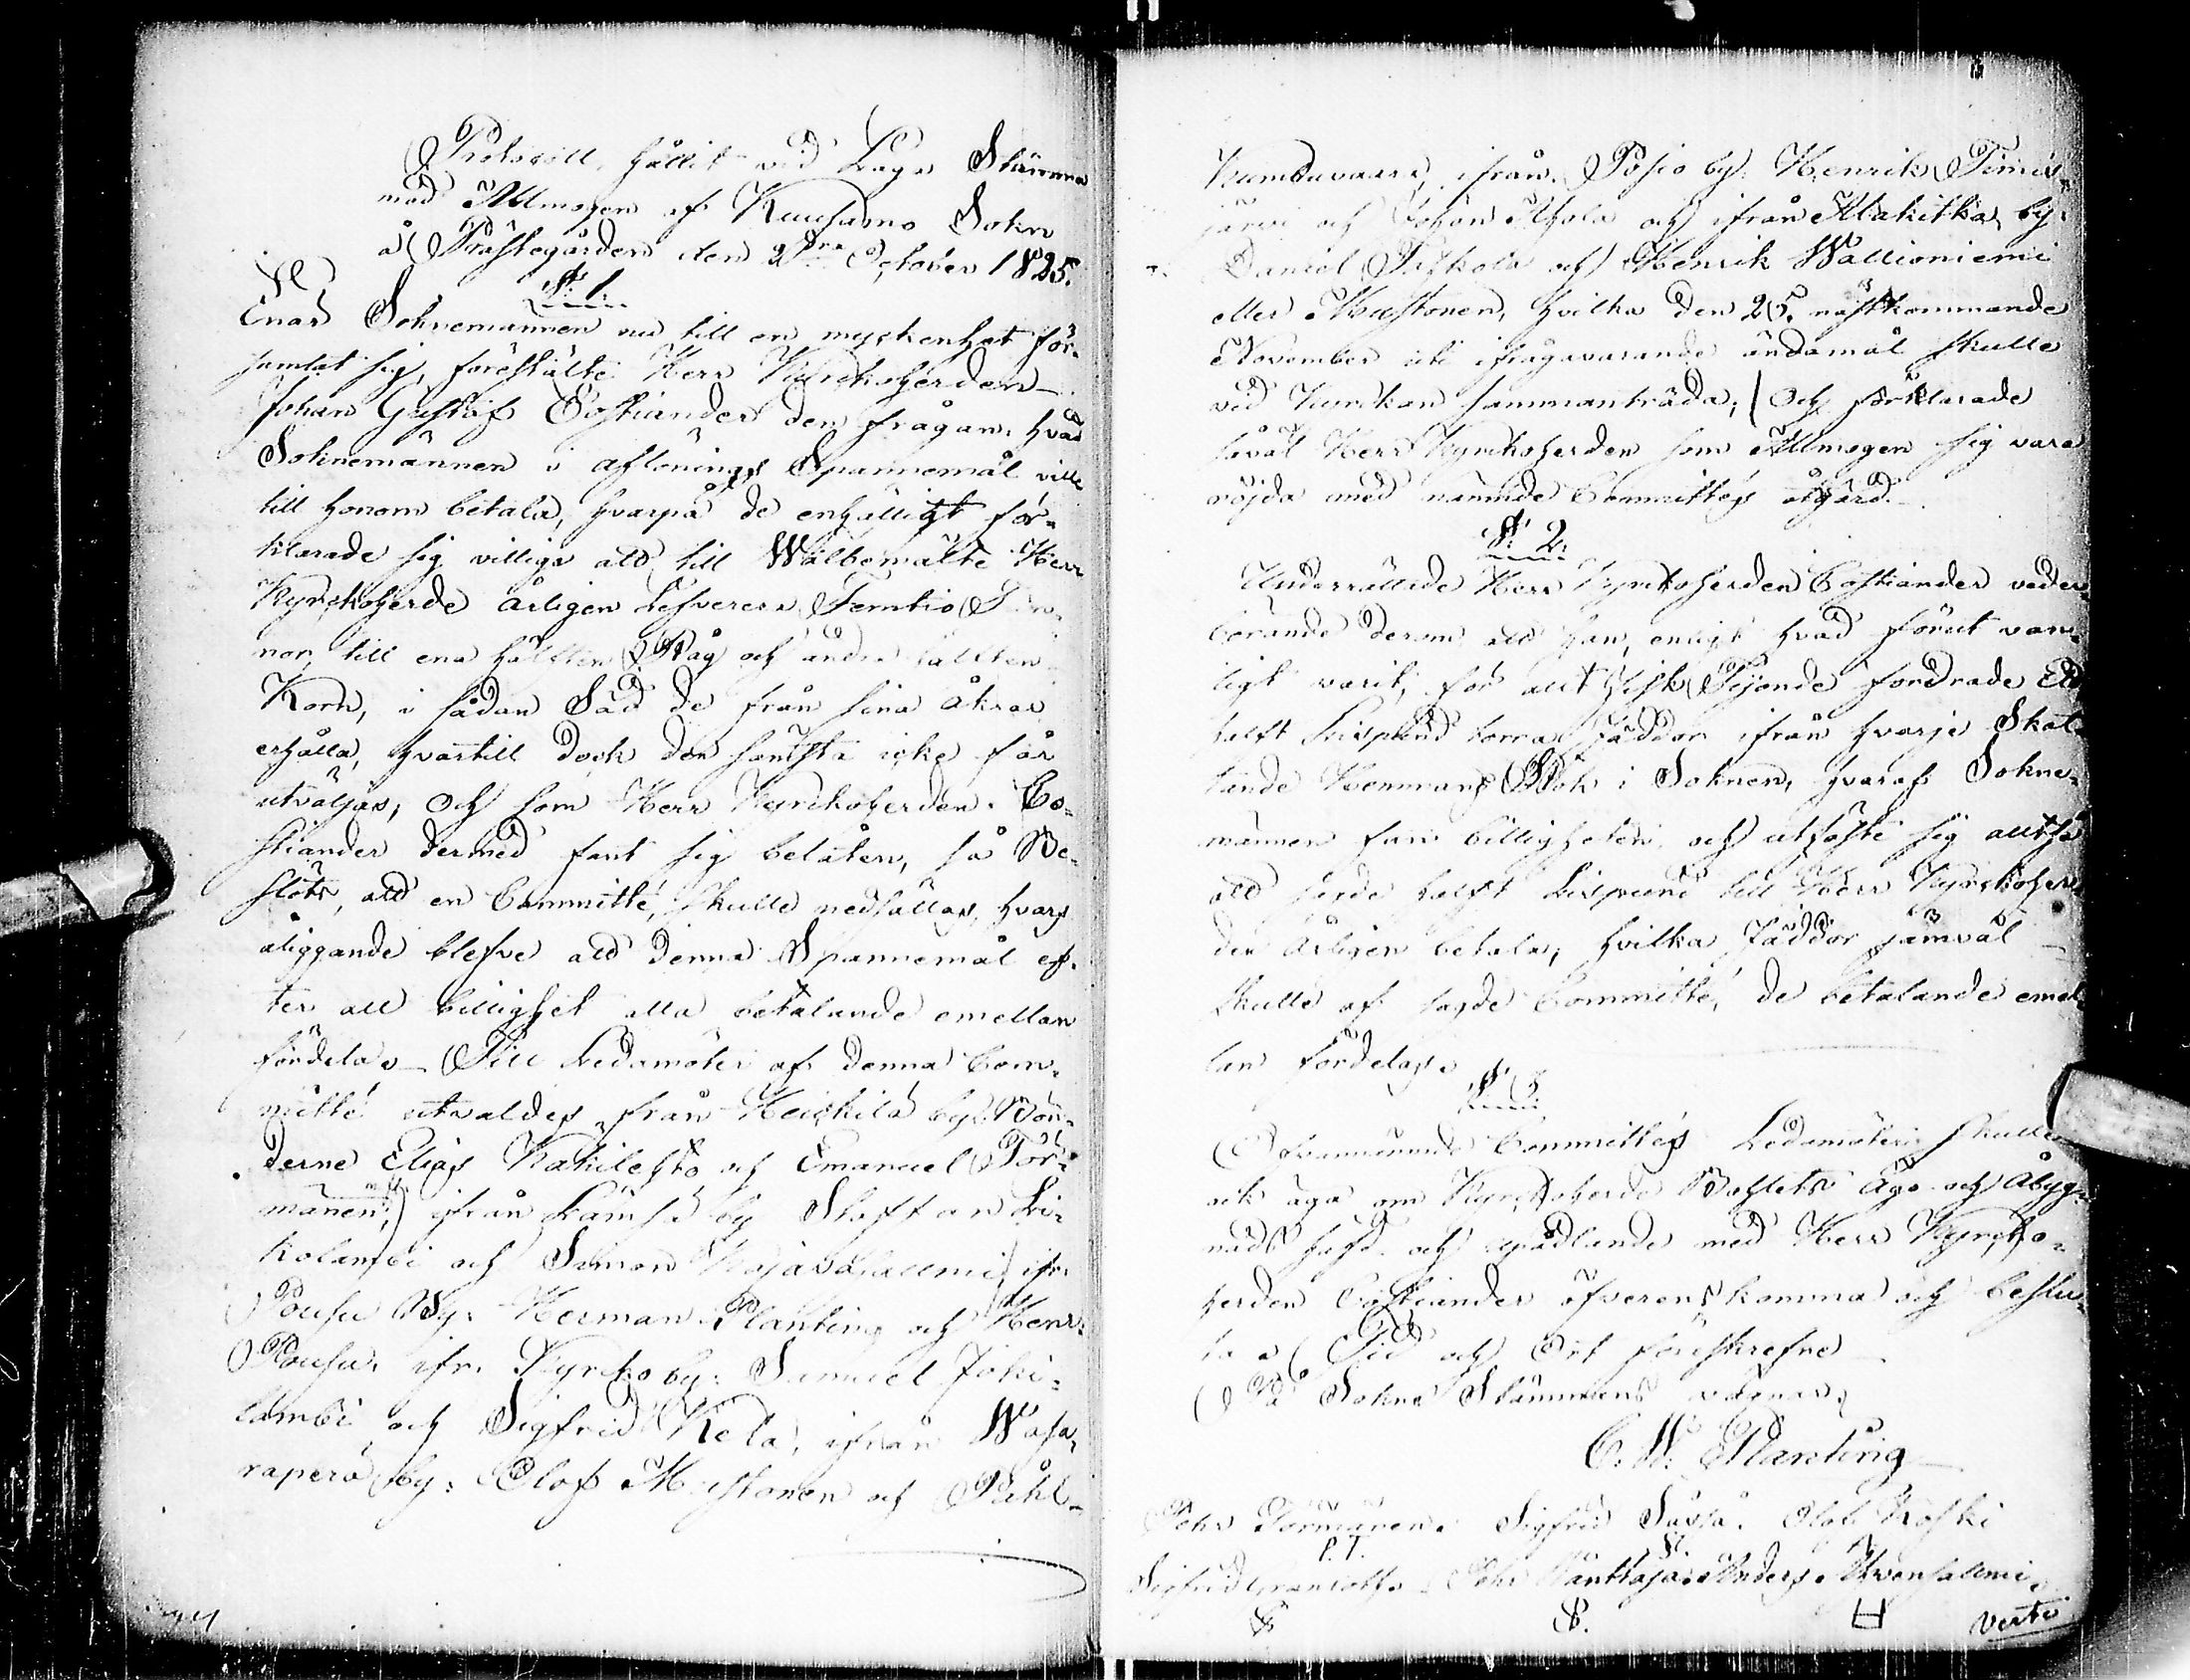 Protocoll, hållit vid Laga Stämma
med Allmogen af Kuusamo Sokn
å Prästegården den 2dra October 1825.
§ 1.
Enär Soknemännen nu till en myckenhet för-
samlat sig, föreställte Herr Kyrckoherden
Johan Gustaf Costiander den frågan, hvad
Soknemännen i aflönings Spannemål ville
till honom betala, hvarpå de enhälligt för-
klarade sig villiga att till Wälbemälte Herr
Kyrckoherde årligen lefverera Femtio Tun-
nor, till ena hälften Råg och andra hälften
Korn, i sådan Säd de från sina åkrar
erhålla, hvartill dock den sämsta icke får
utväljas, Och som Herr Kyrckoherden Co-
stiander dermed fant sig belåten, så Be-
slöts, att en Committé skulle nedsättas, hvars
åliggande blefve att denna Spannemål ef-
ter all billighet alla betalande emellan
fördela. Till Ledamöter af denna Com-
mitté utvaldes, från Heickilä by: Bön-
derne Elias Kakilehto och Emanuel Tör-
mänen; ifrån Lämsä by Staffan Li-
kolambi och Simon Kajavasallmi, ifr.
Pousu By: Herman Planting och Henr.
Pousu, ifr. Kyrcko by: Samuel Joki-
lambi och Sigfrid Kela, ifrån Wasa-
raperä by: Olof Mustonen och Påhl
Kumbuvaara, ifrån Posio by: Henrik Timis-
järvi och Johan Ahola och ifrån Alakitka by:
Daniel Piskola och Henrik Wallioniemi
eller Mustonen, hvilka den 25. nästkommande
November uti ifrågavarande ändamål skulle
vid Kyrckan sammanträda; Och förklarade
såväl Herr Kyrckoherden som Allmogen sig vara
nöjda med nämnde Committés åtgärd.
§ 2.
Underrättade Herr Kyrckoherden Costiander veder-
börande derom att han, enligt hvad förut van-
ligt varit, för allt fisk Tijonde fordrade Ett
halft Lispund torra Jäddor ifrån hvarje Skat-
tande Hemmans Rök i Soknen, hvaraf Sokne-
männen fan billigheten och utfäste sig alltså
att sagde halft Lispund till Herr Kyrckoher-
den årligen betala, hvilka Jäddor jämväl
skulle af sagde Committé, de betalande emel-
lan fördelas.
§ 3
Ofvannämnde Committés Ledamöter skulle
ock äga om Kyrckoherde Bohlets Ägo och Åbyg-
nads häfd och uppådlande med Herr Kyrcko-
herden Costiander öfverenskomma och beslu-
ta. Tid och Ort föreskrefne
På Sokne Stämmans vägnar.
C. W. Planting
Pehr Törmänen. Sigfrid Säv  Olof Koski
P. T.
Sigfrid  Pehr  Anders Ahvensallmi
H
Verte